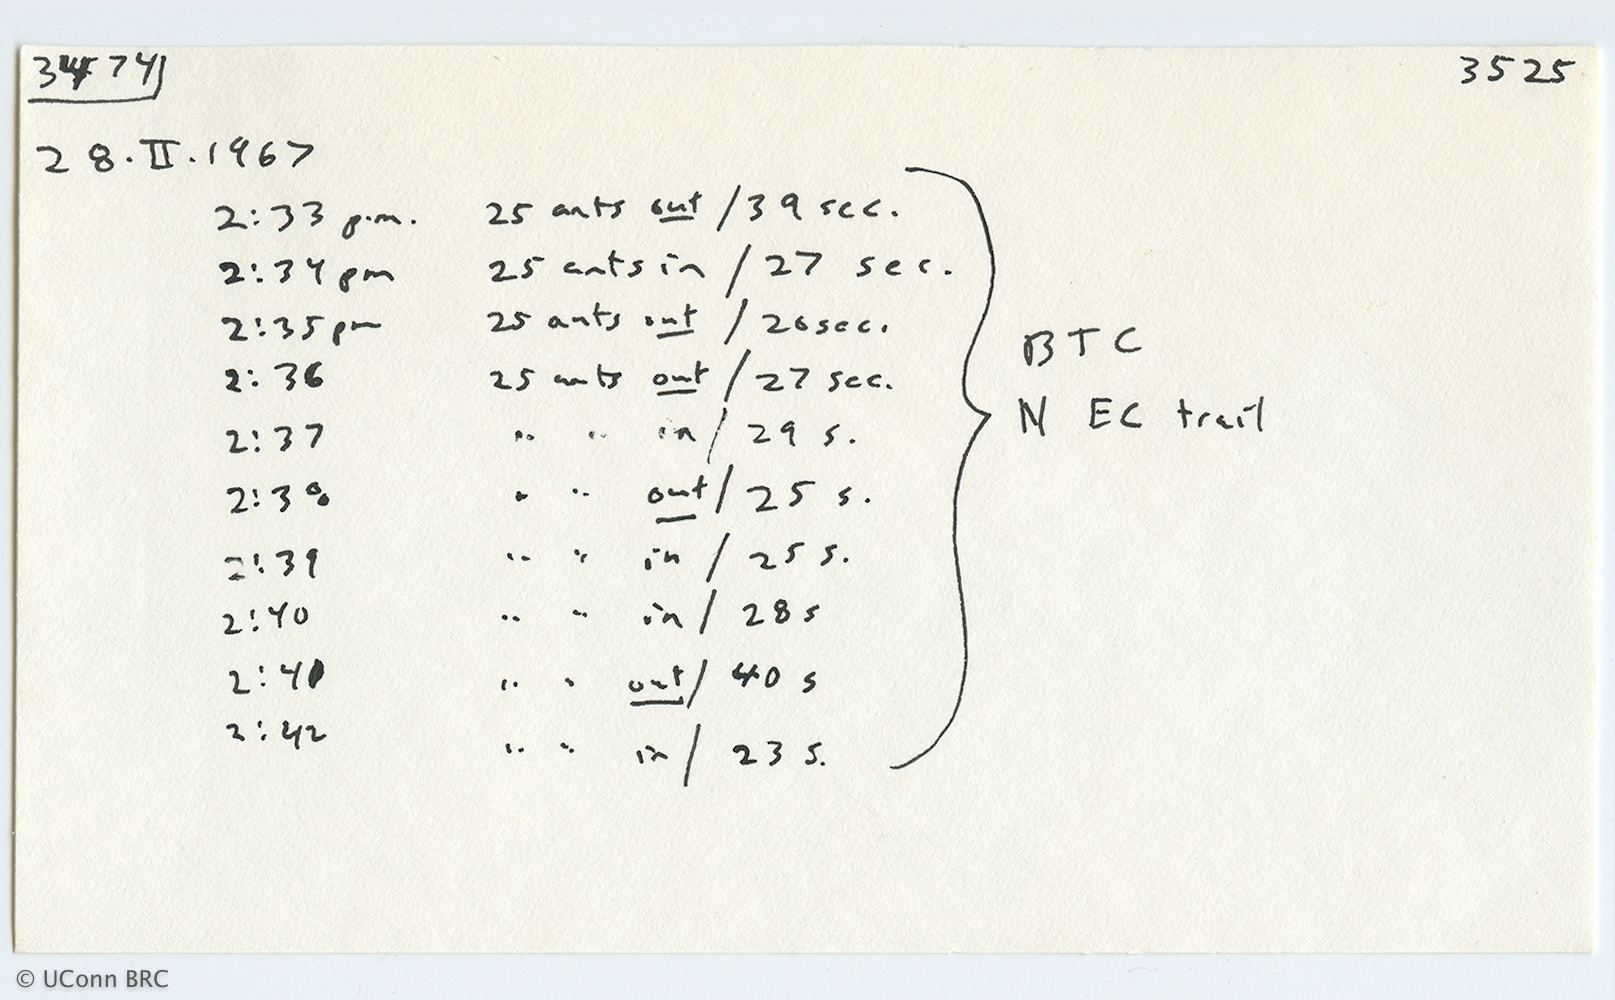 3474 3525
28.II.1967
2:33 p.m. 25 ants out / 39 sec.
2:34 pm 25 ants in / 27 sec.
2:35 pm 25 ants out / 20 sec.
2:36 25 ants out / 27 sec.
2:37 " " in / 29 s.
2:38 " " out / 25 s.
2:39 " " in / 25 s.
2:40 " " in / 28 s
2:41 " " out / 40 s
2:42 " " in / 23 s.
BTC
N EC trail
© UConn BRC